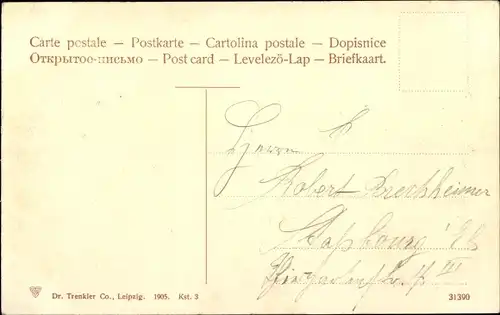 Carte postale — Postkarte — Cartolina postale — Dopisnice
Открытое-письмо — Post card — Levelező-Lap — Briefkaart.
Herrn
Robert
III
Dr. Trenkler Co., Leipzig. 1905. Kst. 3
31390